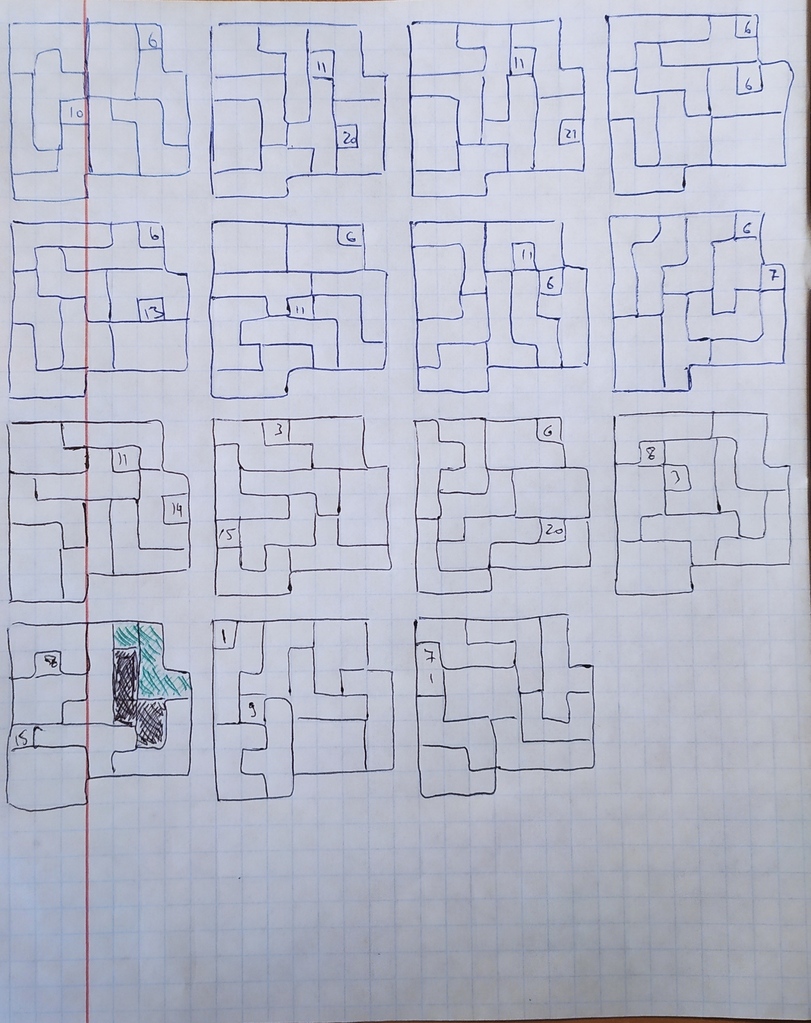 6
10
11
20
11
21
6
6
6
13
6
11
11
6
6
7
11
14
3
15
6
20
8
3
8
15
1
9
7
1